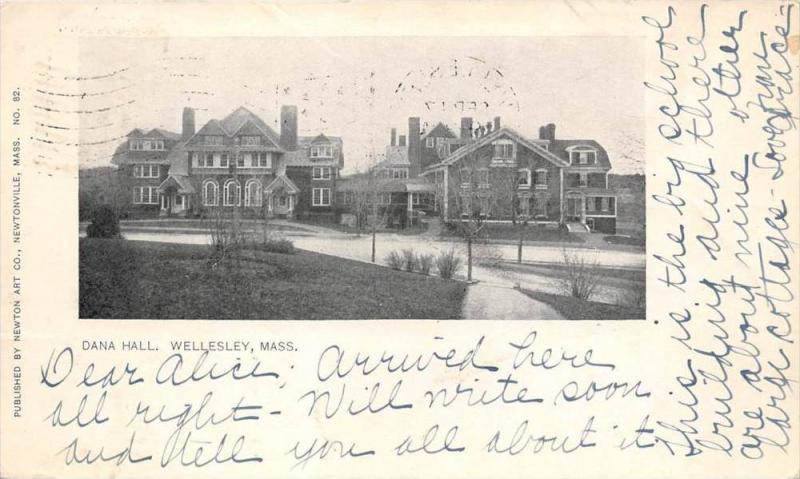 PUBLISHED BY NEWTON ART CO., NEWTONVILLE, MASS. NO. 82.
DANA HALL. WELLESLEY, MASS.
Dear Alice; Arrived here
all right - Will write soon
and tell you all about it.
This is the big school
building and there
are about nine other
large cottages - Love from
Grace -